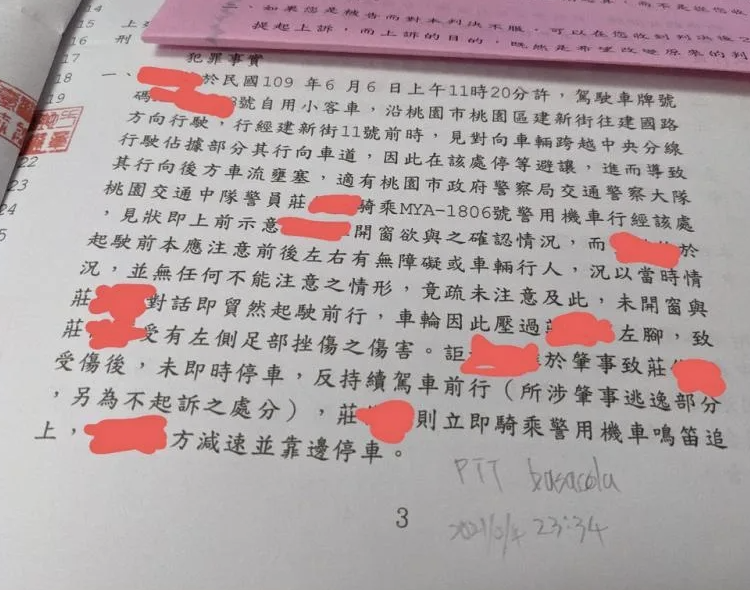 三、如果您是被告而對本判決不服，可以在您收到判決後2
提起上訴，而上訴的目的，既然是希望改變原來的判
14
15
16
17
18
19
22
23
24
5
上
刑
犯罪事實
一、 於民國109 年6 月6 日上午11時20分許，駕駛車牌號
碼 3號自用小客車，沿桃園市桃園區建新街往建國路
方向行駛，行經建新街11號前時，見對向車輛跨越中央分線
行駛佔據部分其行向車道，因此在該處停等避讓，進而導致
其行向後方車流壅塞，適有桃園市政府警察局交通警察大隊
桃園交通中隊警員莊 騎乘MYA-1806號警用機車行經該處
，見狀即上前示意 開窗欲與之確認情況，而 於
起駛前本應注意前後左右有無障礙或車輛行人，況以當時情
況，並無任何不能注意之情形，竟疏未注意及此，未開窗與
莊 對話即貿然起駛前行，車輪因此壓過 左腳，致
莊 受有左側足部挫傷之傷害。詎 於肇事致莊
受傷後，未即時停車，反持續駕車前行（所涉肇事逃逸部分
，另為不起訴之處分），莊 則立即騎乘警用機車鳴笛追
上， 方減速並靠邊停車。
PTT basacola
23:34
3